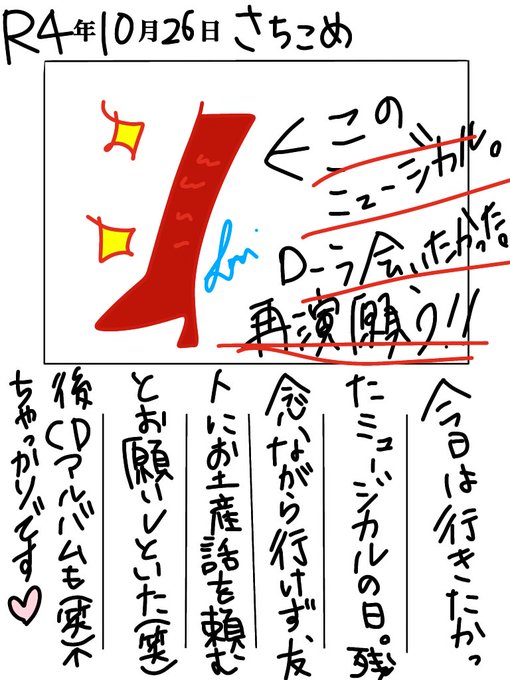 R4年10月26日 さちこめ
←この
ミュージカル。
ローラ会いたかった。
再演願う!!
今日は行きたかっ
たミュージカルの日。残
念いながら行けず、友
人にお土産話を頼む
とお願いしといた(笑)
後CDアルバムも(笑)
ちゃっかりです♡